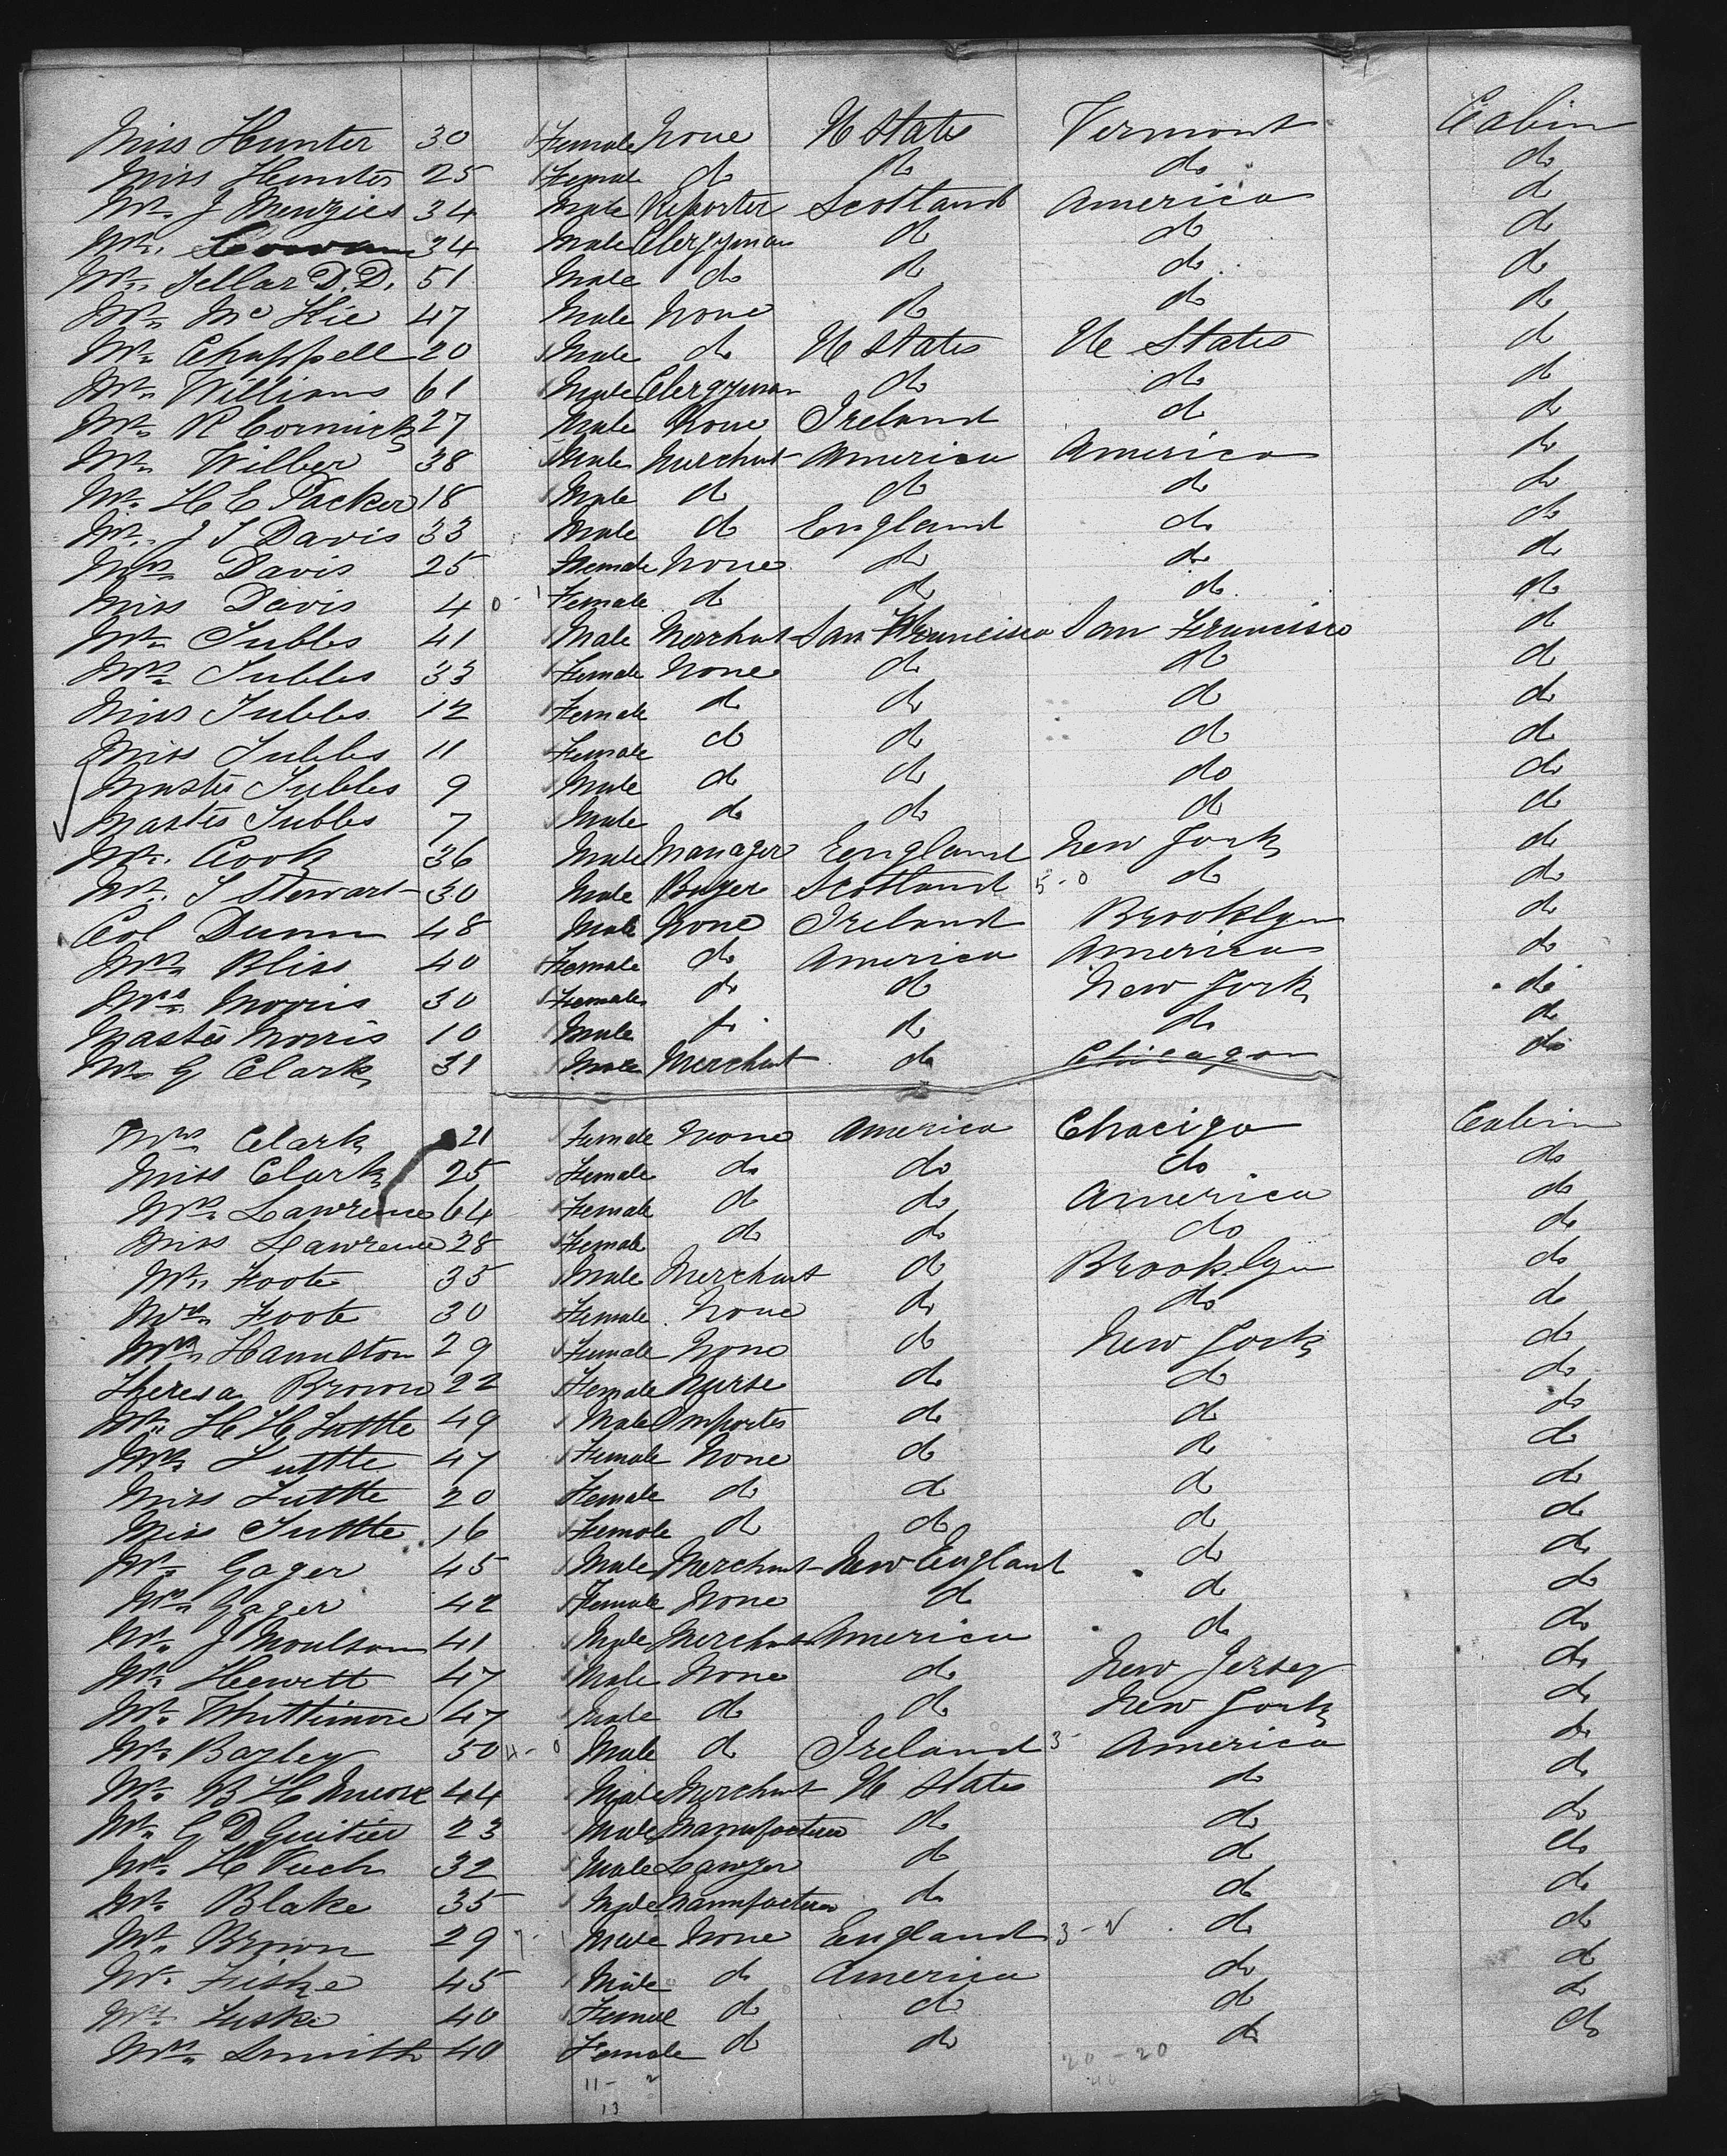 Miss Hunter 30 Female None U States Vermont Cabin
Miss Hunter 25 Female do do do do
Mr. J Menzies 34 Male Reporter Scotland America do
Mr. 34 Male Clergyman do do do
Mr. Sellar D.D. 51 Male do do do do
Mr. McKie 47 Male None do do do
Mr. Chappell 20 Male do U States U States do
Mr. Williams 61 Male Clergyman do do do
Mr. R Cormick 27 Male None Ireland do do
Mr. Wilber 38 Male Merchant America America do
Mr. H E Packer 18 Male do do do do
Mr. J S Davis 33 Male do England do do
Mrs. Davis 25 Female None do do do
Miss Davis 4 0 - 1 Female do do do do
Mr. Tubbs 41 Male Merchant San Francisco San Francisco do
Mrs. Tubbs 33 Female None do do do
Miss Tubbs 12 Female do do do do
Miss Tubbs 11 Female do do do do
Master Tubbs 9 Male do do do do
Master Tubbs 7 Male do do do do
Mr. Cook 36 Male Manager England New York do
Mr. S Stewart 30 Male Buyer Scotland 5 - 0 do do
Col Dunn 48 Male None Ireland Brooklyn do
Mrs. Bliss 40 Female do America America do
Mrs. Morris 30 Female do do New York do
Master Morris 10 Male do do do do
Mr. G Clark 31 Male Merchant do Chicago do
Mrs. Clark 21 Female None America Chacigo Cabin
Miss Clark 25 Female do do do do
Mrs. Lawrence 64 Female do do America do
Miss Lawrence 28 Female do do do do
Mr. Foote 35 Male Merchant do Brooklyn do
Mrs. Foote 30 Female None do do do
Mrs. Hamilton 29 Female None do New York do
Theresa Brown 22 Female Nurse do do do
Mr. H H Tuttle 49 Male Importer do do do
Mrs. Tuttle 47 Female None do do do
Miss Tuttle 20 Female do do do do
Miss Tuttle 16 Female do do do do
Mr. Gager 45 Male Merchant New England do do
Mrs. Gager 42 Female None do do do
Mr. J Moulson 41 Male Merchant America do do
Mr. Hewitt 47 Male None do New Jersey do
Mr. Whittimore 47 Male do do New York do
Mr. Bazley 50 4 - 0 Male do Ireland 3 - America do
Mr. B H 44 Male Merchant U States do do
Mr. G D 23 Male Manufacturer do do do
Mr. H 32 Male Lawyer do do do
Mr. Blake 35 Male Manufacturer do do do
Mr. Brown 29 7 - 1 Male None England 3 - do do
Mr. Fiske 45 Male do America do do
Mrs. Fiske 40 Female do do do do
Mrs. Smith 40 Female do do do do
20 - 20
11 - 2
13